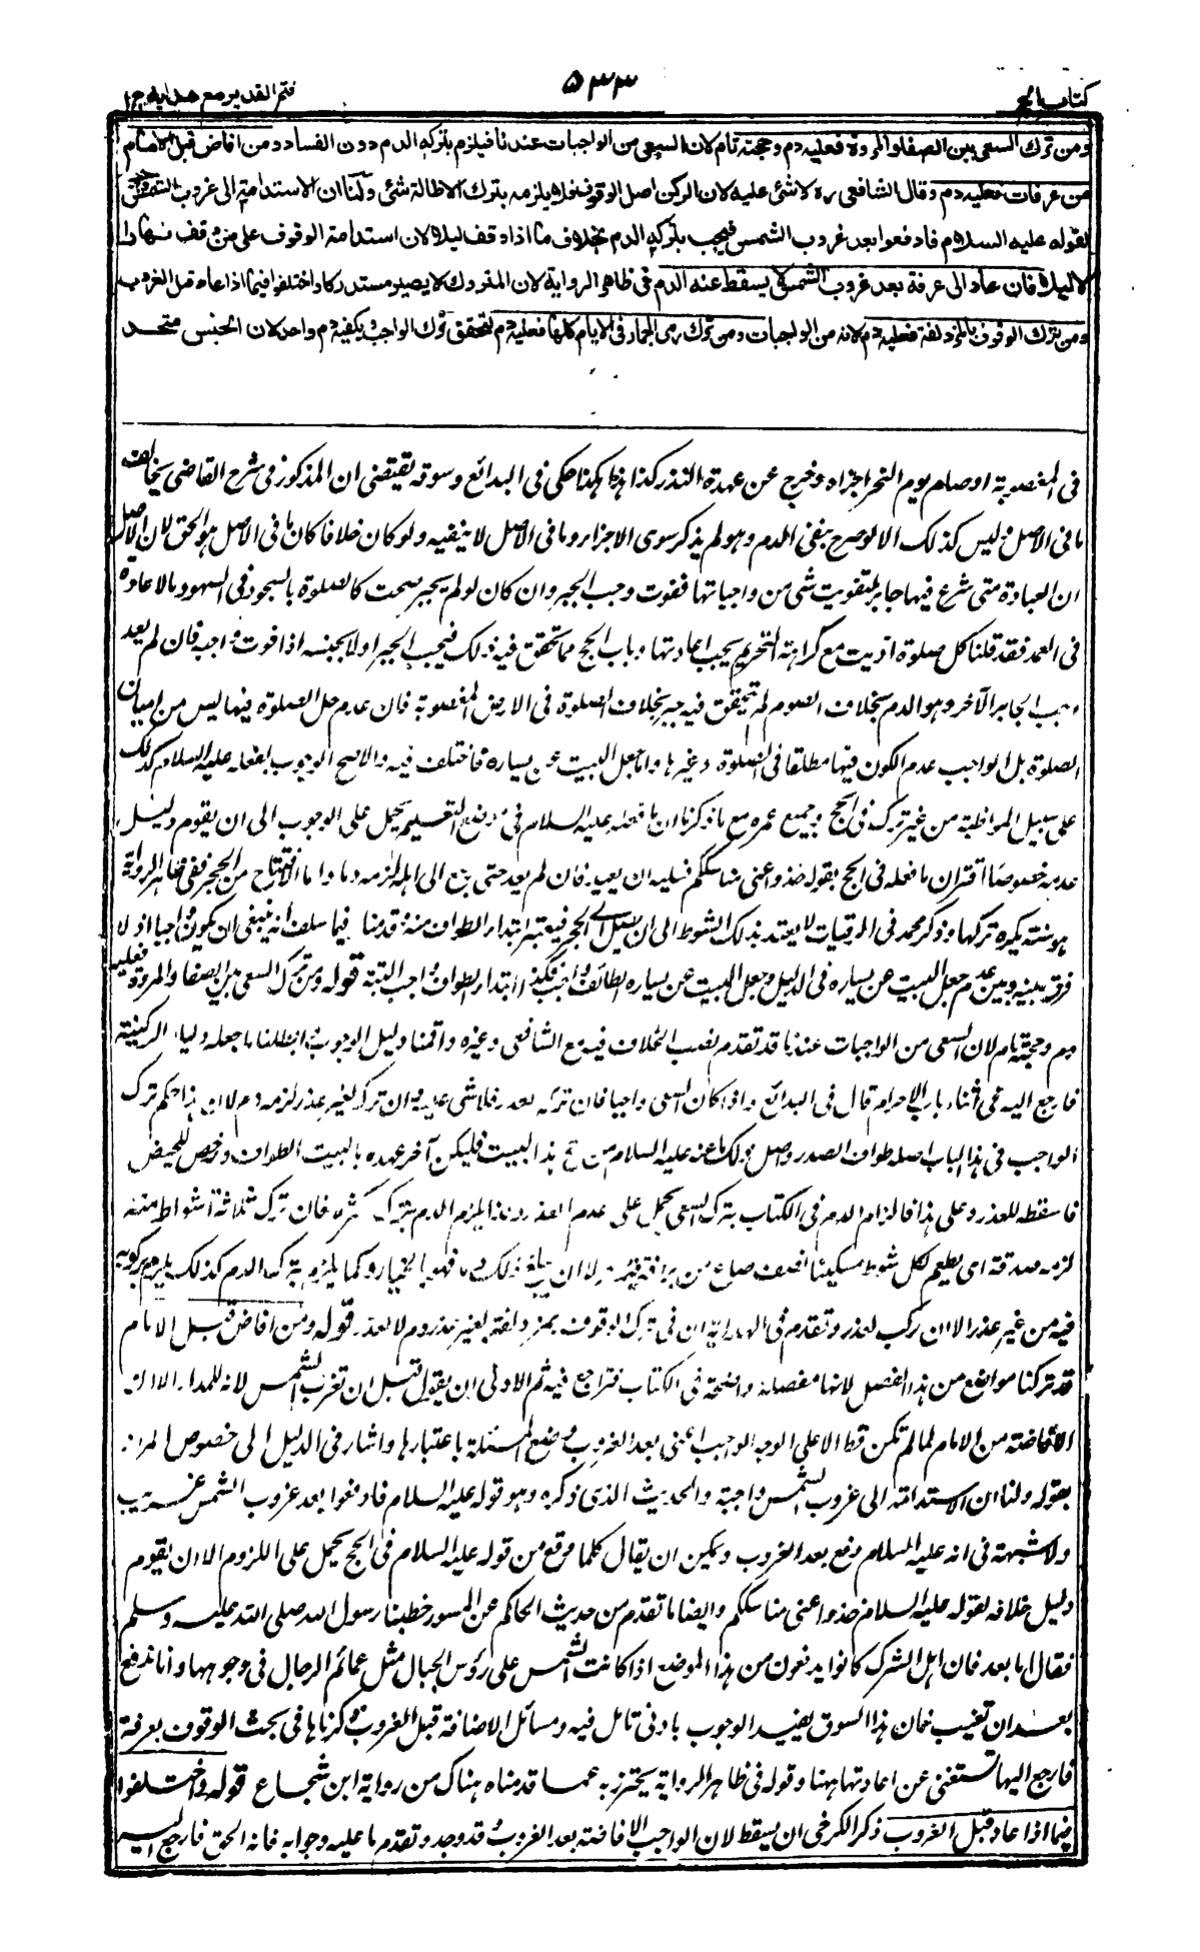 كتاب الحج
۵۳۳
فتح القدير مع هدايه ج ا
ومن ترك السعى بين الصفا والمروة فعليه دم وحجته تام لان السعى من الواجبات عندنا فيلزم بتركه الدم دون الفساد ومن افاض قبل الامام
من عرفات فعليه دم وقال الشافعى ره لا شئ عليه لان الركن اصل الوقوف فلا يلزمه بترك الاطالة شئ ولنا ان الاستدامة الى غروب الشمس
لقوله عليه السلام فادفعوا بعد غروب الشمس فيجب بتركه الدم بخلاف ما اذا وقف ليلا لان استدامة الوقوف على من وقف نهارا
لا ليلا فان عاد الى عرفة بعد غروب الشمس لا يسقط عنه الدم فى ظاهر الرواية لان المتروك لا يصير مستدركا واختلفوا فيما اذا عاد قبل الغروب
ومن ترك الوقوف بالمزدلفة فعليه دم لانه من الواجبات ومن ترك رمى الجمار فى الايام كلها فعليه دم لتحقق ترك الواجب ويكفيه دم واحد لان الجنس متحد
فى المغصوبة او صام يوم النحر اجزاه وخرج عن عهدة النذر كذا هذا هكذا حكى فى البدائع وسوقه يقتضى ان المذكور فى شرح القاضى يخالف
ما فى الاصل وليس كذلك الا لو صرح بنفى الدم وهو لم يذكر سوى الاجزاء وما فى الاصل لا ينفيه ولو كان خلافا كان ما فى الاصل هو الحق لان الاصل
ان العبادة متى شرع فيها جابر لتفويت شئ من واجباتها ففوت وجب الجبر وان كان لو لم يجبر صحت كالصلوة بالسجود فى السهود بالاعادة
فى العمد فقد قلنا كل صلوة اديت مع كراهة التحريم يجب اعادتها وباب الحج مما تحقق فيه ذلك فيجب الجبر اولا بجنسه اذا فوت واجبه فان لم يعد
وجب الجابر الآخر وهو الدم بخلاف الصوم لم يتحقق فيه جبر بخلاف الصلوة فى الارض المغصوبة فان عدم حل الصلوة فيها ليس من واجبات
الصلوة بل الواجب عدم الكون فيها مطلقا فى الصلوة وغيرها واما جعل البيت عن يساره فاختلف فيه والاصح الوجوب لفعله عليه السلام كذلك
على سبيل المواظبة من غير ترك فى الحج وجميع عمره مع ما ذكرنا ان ما فعله عليه السلام فى موضع التعليم يحمل على الوجوب الى ان يقوم دليل
عدمه خصوصا اقتران ما فعله فى الحج بقوله خذوا عنى مناسككم فعليه ان يعيد فان لم يعد حتى رجع الى اهله لزمه دم واما الافتتاح من الحجر ففى ظاهر الرواية
هو سنة يكره تركها وذكر محمد فى الرقيات لا يعتد بذلك الشوط الى ان يصل الى الحجر فيعتبر ابتداء الطواف منه وقدمنا فيما سلف انه ينبغى ان يكون واجبا اذ لا
فرق بينه وبين عدم جعل البيت عن يساره فى الدليل وجعل البيت عن يساره الطائف واجب فكذا ابتداء الطواف واجب البتة قوله ومن ترك السعى بين الصفا والمروة فعليه
دم وحجته تام لان السعى من الواجبات عندنا قد تقدم نصب الخلاف فيه مع الشافعى وغيره واقمنا دليل الوجوب وابطلنا ما جعله دليل الركنية
فارجع اليه فى اثناء باب الاحرام قال فى البدائع واذا كان السعى واجبا فان تركه لعذر فلا شئ عليه وان تركه لغير عذر لزمه دم لان هذا حكم ترك
الواجب فى هذا الباب اصله طواف الصدر واصل ذلك ما عنه عليه السلام من حج هذا البيت فليكن آخر عهده بالبيت الطواف ورخص للحيض
فاسقطه للعذر وعلى هذا فالزام الدم فى الكتاب بترك السعى يحمل على عدم العذر وكذا يلزم الدم بترك اكثره فان ترك ثلاثة اشواط منه
لزمه صدقة اى يطعم لكل شوط مسكينا نصف صاع من بر او قيمته الا ان يبلغ ذلك دما فهو بالخيار وكما يلزم بتركه الدم كذلك يلزم بركوبه
فيه من غير عذر الا ان ركب لعذر وتقدم فى الهداية ان فى ترك الوقوف بمزدلفة بغير عذر دم لا لعذر قوله ومن افاض قبل الامام
قد تركنا مواضع من هذا الفصل لانها مفصلة واضحة فى الكتاب فتراجع فيه ثم الاولى ان يقول قبل ان تغرب الشمس لانه للمدار الا ان
الافاضة من الامام لما لم تكن قط الا على الوجه الواجب اعنى بعد الغروب وضع المسئلة باعتبارها واشار فى الدليل الى خصوص المراد
بقوله ولنا ان الاستدامة الى غروب الشمس واجبة والحديث الذى ذكره وهو قوله عليه السلام فادفعوا بعد غروب الشمس غريب
ولا شبهة فى انه عليه السلام دفع بعد الغروب ويمكن ان يقال كلما وقع من قوله عليه السلام فى الحج يحمل على اللزوم الا ان يقوم
دليل خلافه لقوله عليه السلام خذوا عنى مناسككم وايضا ما تقدم من حديث الحاكم عن المسور خطبنا رسول الله صلى الله عليه وسلم
فقال اما بعد فان اهل الشرك كانوا يدفعون من هذا الموضع اذا كانت الشمس على رؤس الجبال مثل عمائم الرجال فى وجوهها وانا ندفع
بعد ان تغيب فان هذا السوق يفيد الوجوب بادنى تامل فيه ومسائل الافاضة قبل الغروب ذكرناها فى بحث الوقوف بعرفة
فارجع اليها تستغنى عن اعادتها ههنا وقوله فى ظاهر الرواية يحترز به عما قدمناه هناك من رواية ابن شجاع قوله واختلفوا
فيما اذا عاد قبل الغروب ذكر الكرخى ان يسقط لان الواجب الافاضة بعد الغروب وقد وجد وتقدم ما عليه وجوابه فانه الحق فارجع اليه